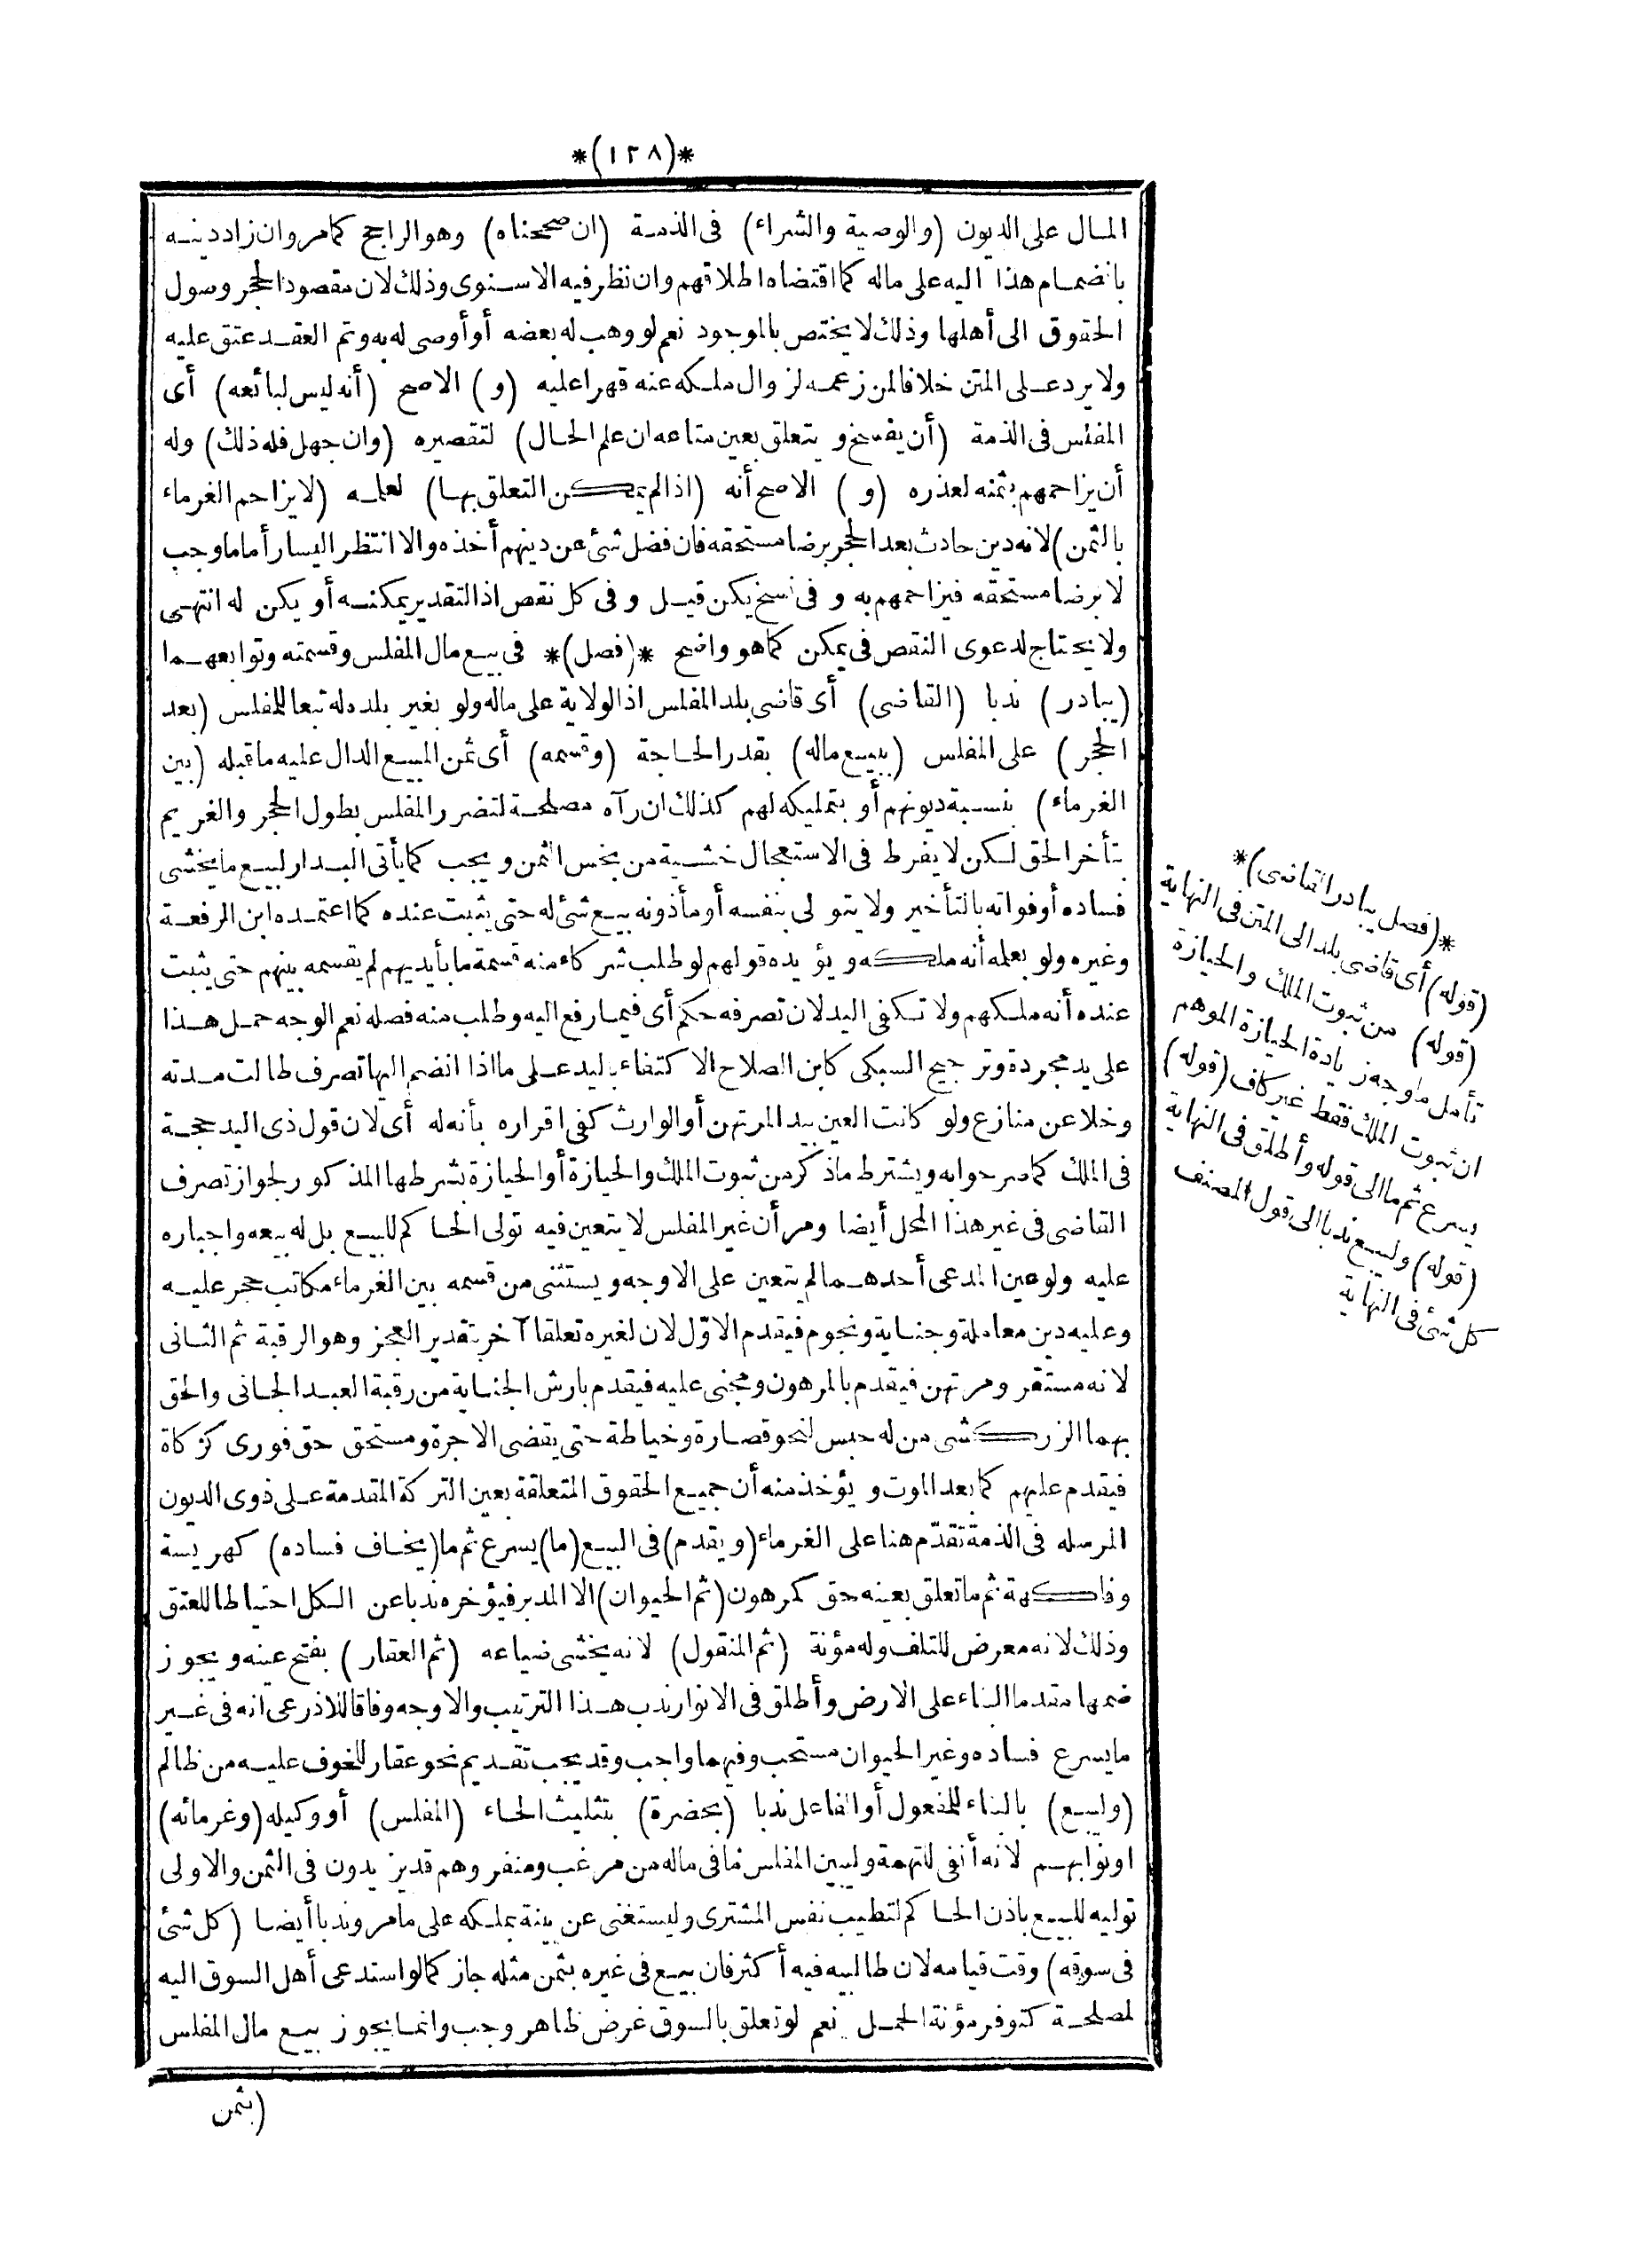 *(١٢٨)*
المال على الديون (والوصية والشراء) فى الذمة (ان صححناه) وهو الراجح كما مر وان زاد دينه
بانضمام هذا اليه على ماله كما اقتضاه اطلاقهم وان نظر فيه الاسنوى وذلك لان مقصود الحجر وصول
الحقوق الى أهلها وذلك لا يختص بالموجود نعم لو وهب له بعضه أو أوصى له به وتم العقد عتق عليه
ولا يرد على المتن خلافا لمن زعمه لزوال ملكه عنه قهرا عليه (و) الاصح (أنه ليس لبائعه) أى
المفلس فى الذمة (أن يفسخ ويتعلق بعين متاعه ان علم الحال) لتقصيره (وان جهل فله ذلك) وله
أن يزاحمهم بثمنه لعذره (و) الاصح أنه (اذا لم يمكن التعلق بها) لعلمه (لا يزاحم الغرماء
بالثمن) لانه دين حادث بعد الحجر برضا مستحقه فان فضل شئ عن دينهم أخذه والا انتظر اليسار أما ما وجب
لا برضا مستحقه فيزاحمهم به وفى نسخ يكن قيل وفى كل نقص اذ التقدير يمكنه أو يكن له انتهى
ولا يحتاج لدعوى النقص فى يمكن كما هو واضح *(فصل)* فى بيع مال المفلس وقسمته وتوابعهما
(يبادر) ندبا (القاضى) أى قاضى بلد المفلس اذ الولاية على ماله ولو بغير بلده له تبعا للمفلس (بعد
الحجر) على المفلس (ببيع ماله) بقدر الحاجة (وقسمه) أى ثمن المبيع الدال عليه ما قبله (بين
الغرماء) بنسبة ديونهم أو بتمليكه لهم كذلك ان رآه مصلحة لتضرر المفلس بطول الحجر والغريم
بتأخر الحق لكن لا يفرط فى الاستعجال خشية من بخس الثمن ويجب كما يأتى البدار لبيع ما يخشى
فساده أو فواته بالتأخير ولا يتولى بنفسه أو مأذونه بيع شئ له حتى يثبت عنده كما اعتمده ابن الرفعة
وغيره ولو بعلمه أنه ملكه ويؤيده قولهم لو طلب شركاء منه قسمة ما بأيديهم لم يقسمه بينهم حتى يثبت
عنده أنه ملكهم ولا تكفى اليد لان تصرفه حكم أى فيما رفع اليه وطلب منه فصله نعم الوجه حمل هذا
على يد مجردة وترجيح السبكى كابن الصلاح الاكتفاء باليد على ما اذا انضم اليها تصرف طالت مدته
وخلا عن منازع ولو كانت العين بيد المرتهن أو الوارث كفى اقراره بأنه له أى لان قول ذى اليد حجة
فى الملك كما صرحوا به ويشترط ما ذكر من ثبوت الملك والحيازة أو الحيازة بشرطها المذكور لجواز تصرف
القاضى فى غير هذا المحل أيضا ومر أن غير المفلس لا يتعين فيه تولى الحاكم للبيع بل له بيعه واجباره
عليه ولو عين المدعى أحدهما لم يتعين على الاوجه ويستثنى من قسمه بين الغرماء مكاتب حجر عليه
وعليه دين معاملة وجناية ونجوم فيقدم الاوّل لان لغيره تعلقا آخر بتقدير العجز وهو الرقبة ثم الثانى
لانه مستقر ومرتهن فيقدم بالمرهون ومجنى عليه فيقدم بارش الجناية من رقبة العبد الجانى والحق
بهما الزركشى من له حبس لنحو قصارة وخياطة حتى يقضى الاجرة ومستحق حق فورى كزكاة
فيقدم عليهم كما بعد الموت ويؤخذ منه أن جميع الحقوق المتعلقة بعين التركة المقدمة على ذوى الديون
المرسله فى الذمة تقدّم هنا على الغرماء (ويقدم) فى البيع (ما) يسرع ثم ما (يخاف فساده) كهريسة
وفاكهة ثم ما تعلق بعينه حق كمرهون (ثم الحيوان) الا المدبر فيؤخره ندبا عن الكل احتياطا للعتق
وذلك لانه معرض للتلف وله مؤنة (ثم المنقول) لانه يخشى ضياعه (ثم العقار) بفتح عينه ويجوز
ضمها مقدما البناء على الارض وأطلق فى الانوار ندب هذا الترتيب والاوجه وفاقا للاذرعى انه فى غير
ما يسرع فساده وغير الحيوان مستحب وفيهما واجب وقد يجب تقديم نحو عقار للخوف عليه من ظالم
(وليبع) بالبناء للمفعول أو الفاعل ندبا (بحضرة) بتثليث الحاء (المفلس) أو وكيله (وغرمائه)
او نوابهم لانه أنفى للتهمة وليبين المفلس ما فى ماله من مرغب ومنفر وهم قد يزيدون فى الثمن والاولى
توليه للبيع باذن الحاكم لتطيب نفس المشترى وليستغنى عن بينة بملكه على ما مر وندبا أيضا (كل شئ
فى سوقه) وقت قيامه لان طالبيه فيه أكثر فان بيع فى غيره بثمن مثله جاز كما لو استدعى أهل السوق اليه
لمصلحة كتوفر مؤنة الحمل نعم لو تعلق بالسوق غرض ظاهر وجب وانما يجوز بيع مال المفلس
(بثمن
*(فصل يبادر القاضى)*
(قوله) أى قاضى بلد الى المتن فى النهاية
(قوله) من ثبوت الملك والحيازة
تأمل ما وجه زيادة الحيازة الموهم
ان ثبوت الملك فقط غير كاف (قوله)
يسرع ثم ما الى قوله وأطلق فى النهاية
(قوله) وليبع ندبا الى قول المصنف
كل شئ فى النهاية